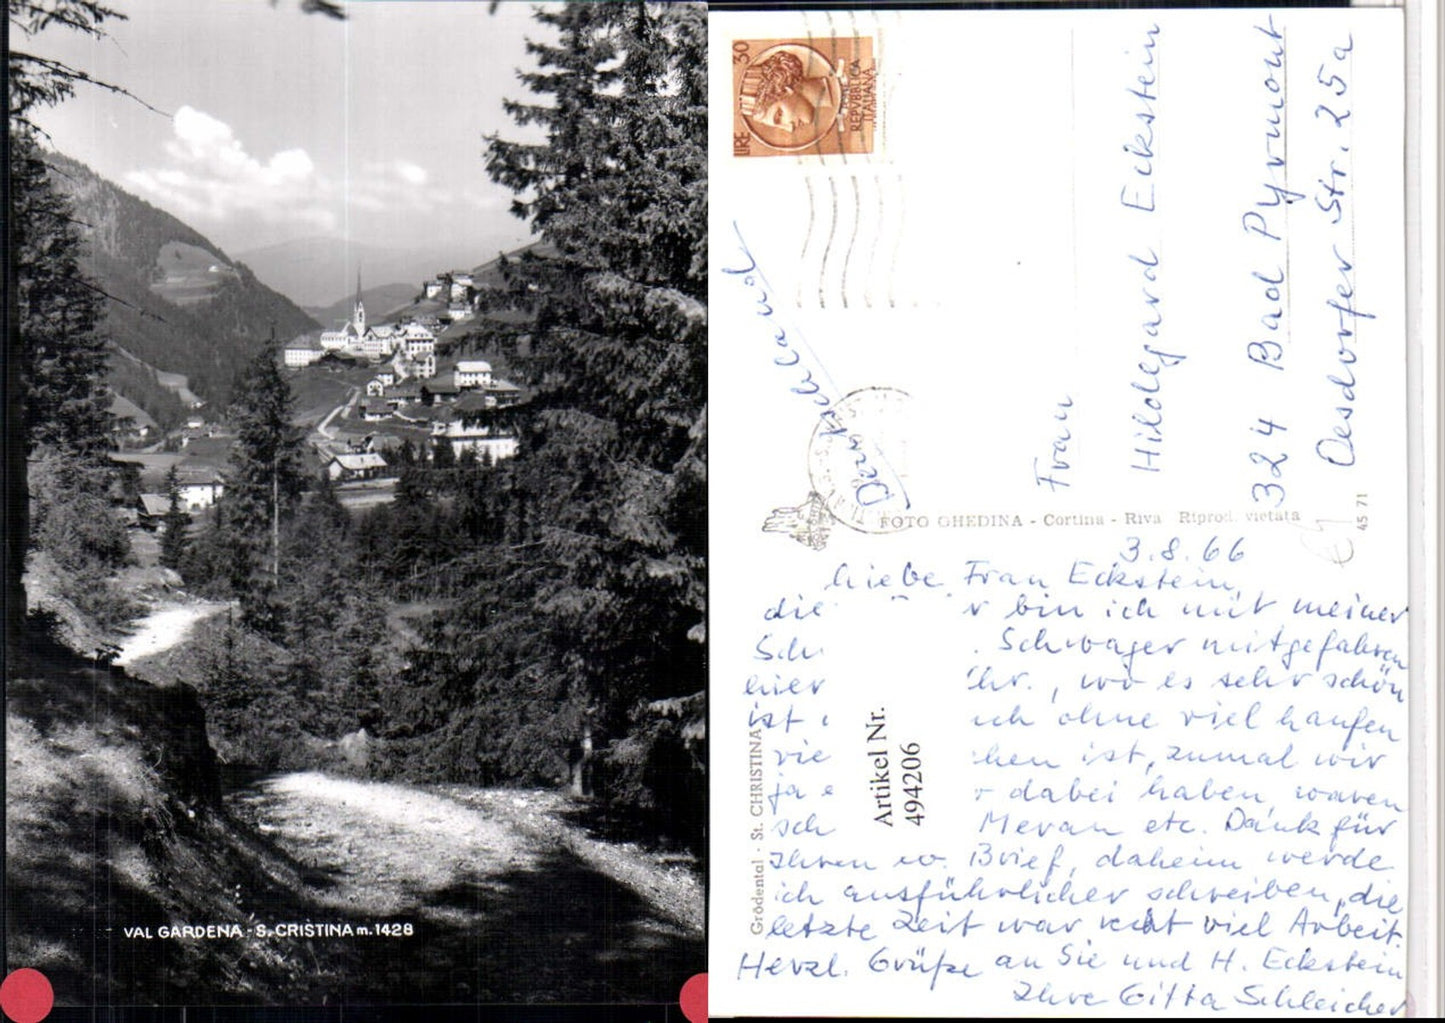 VAL GARDENA - S. CRISTINA m. 1428
LIRE 30
REPVBBLICA
ITALIANA
Deutschland
Frau
Hildegard Eckstein
324 Bad Pyrmont
Oesdorfer Str. 25a
FOTO GHEDINA - Cortina - Riva Riprod. vietata
45 71
Grödental - St. CHRISTINA
Artikel Nr.
494206
3.8.66
Liebe Frau Eckstein,
die bin ich mit meiner
Schwager mitgefahren
hier , wo es sehr schön
ist ohne viel haufen
ist, zumal wir
ja dabei haben, waren
Meran etc. Dank für
Ihren Brief, daheim werde
ich ausführlicher schreiben, die
letzte Zeit war recht viel Arbeit.
Herzl. Grüße an Sie und H. Eckstein
Ihre Gitta Schleicher